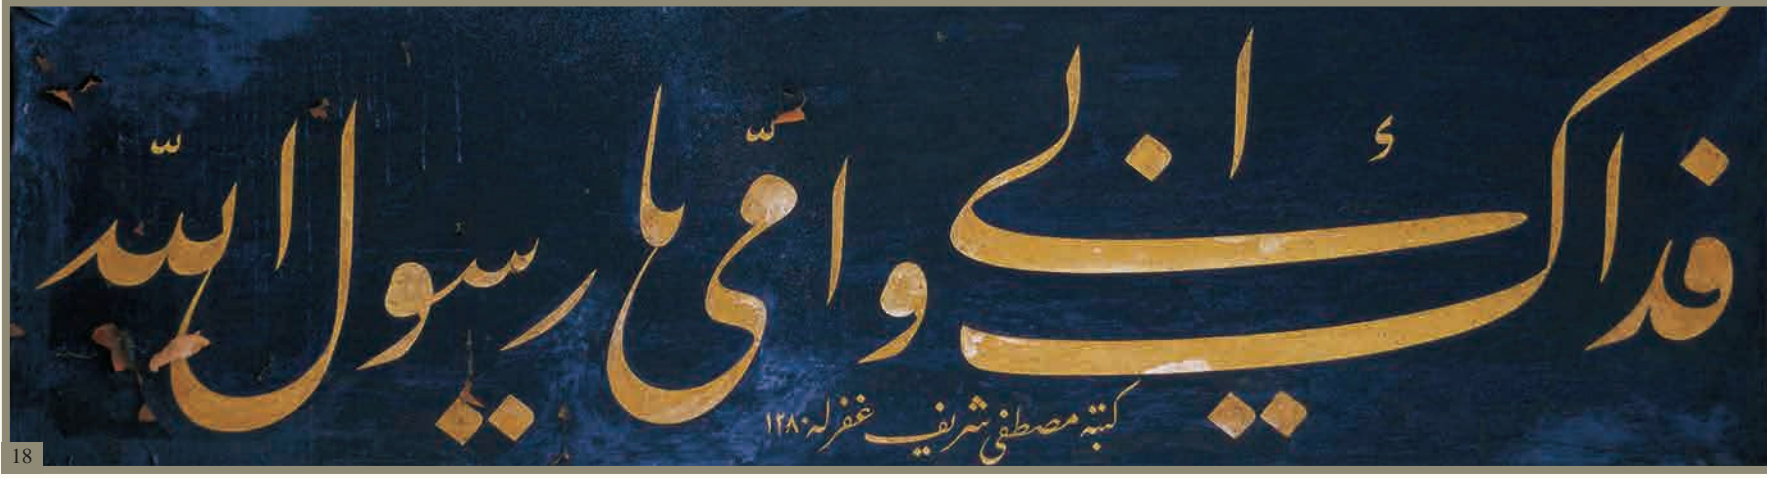 فداك ابي وامّي يا رسول اللّه
كتبه مصطفى شريف غفر له ١٢٨٠
18